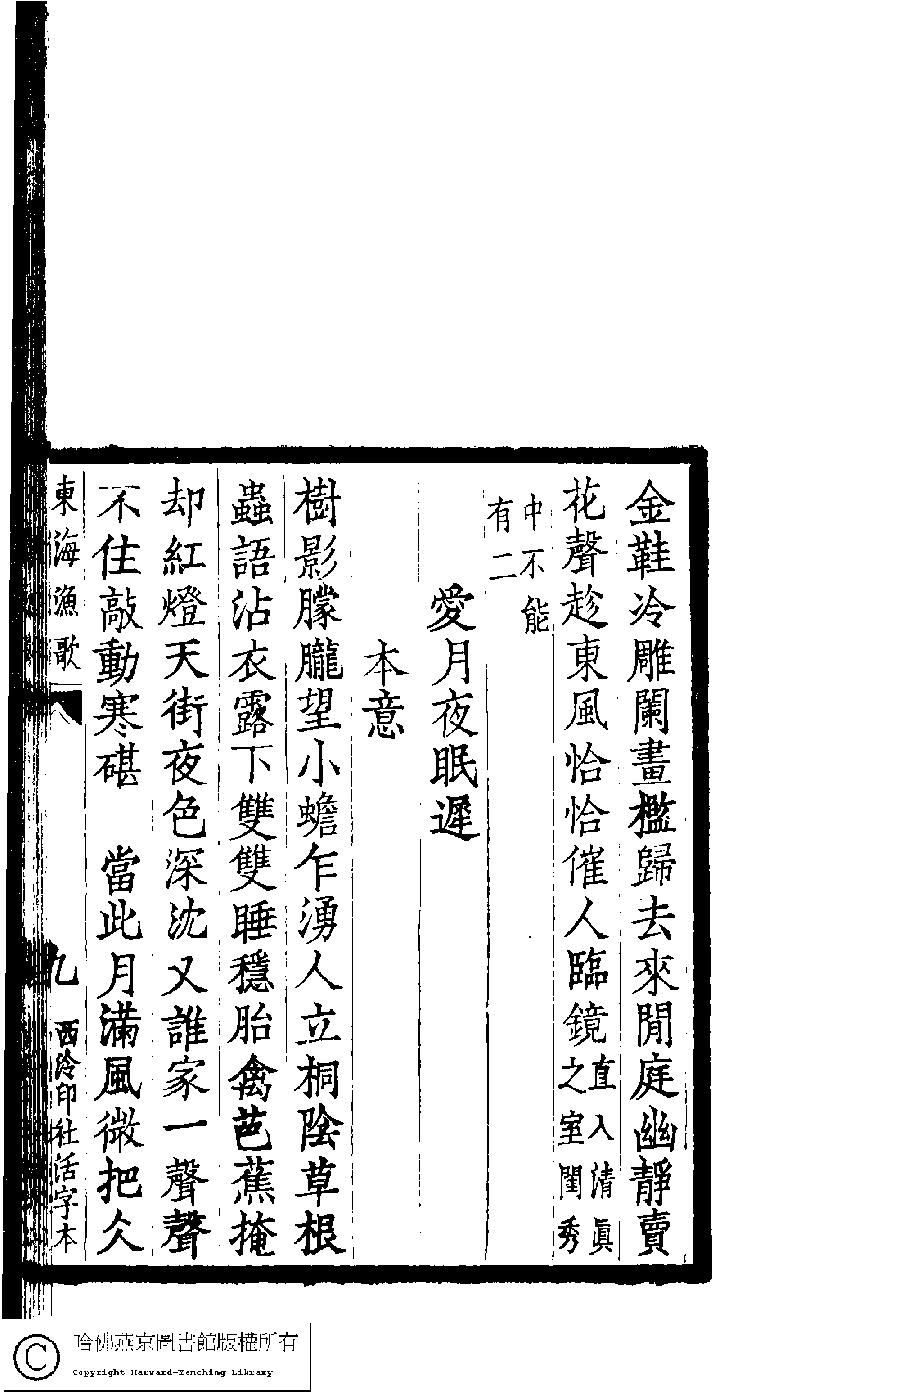 金鞋冷雕闌畫檻歸去來閒庭幽靜賣
花聲趁東風恰恰催人臨鏡直入清眞
之室閨秀
中不能
有二
愛月夜眠遲
本意
樹影朦朧望小蟾乍湧人立桐陰草根
蟲語沾衣露下雙雙睡穩胎禽芭蕉掩
却紅燈天街夜色深沈又誰家一聲聲
不住敲動寒碪　當此月滿風微把久
東海漁歌
九
西泠印社活字本
哈佛燕京圖書館版權所有
Copyright Harvard-Yenching Library